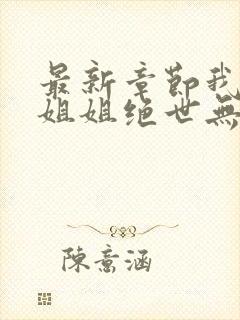 最新章節我
姐姐绝世無
陳意涵